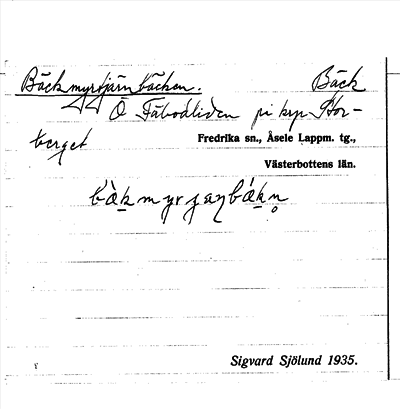 Bäckmyrtjärnbäcken. Bäck
Ö Fäbodliden på krp Stor-
berget
Fredrika sn., Åsele Lappm. tg.,
Västerbottens län.
Sigvard Sjölund 1935.